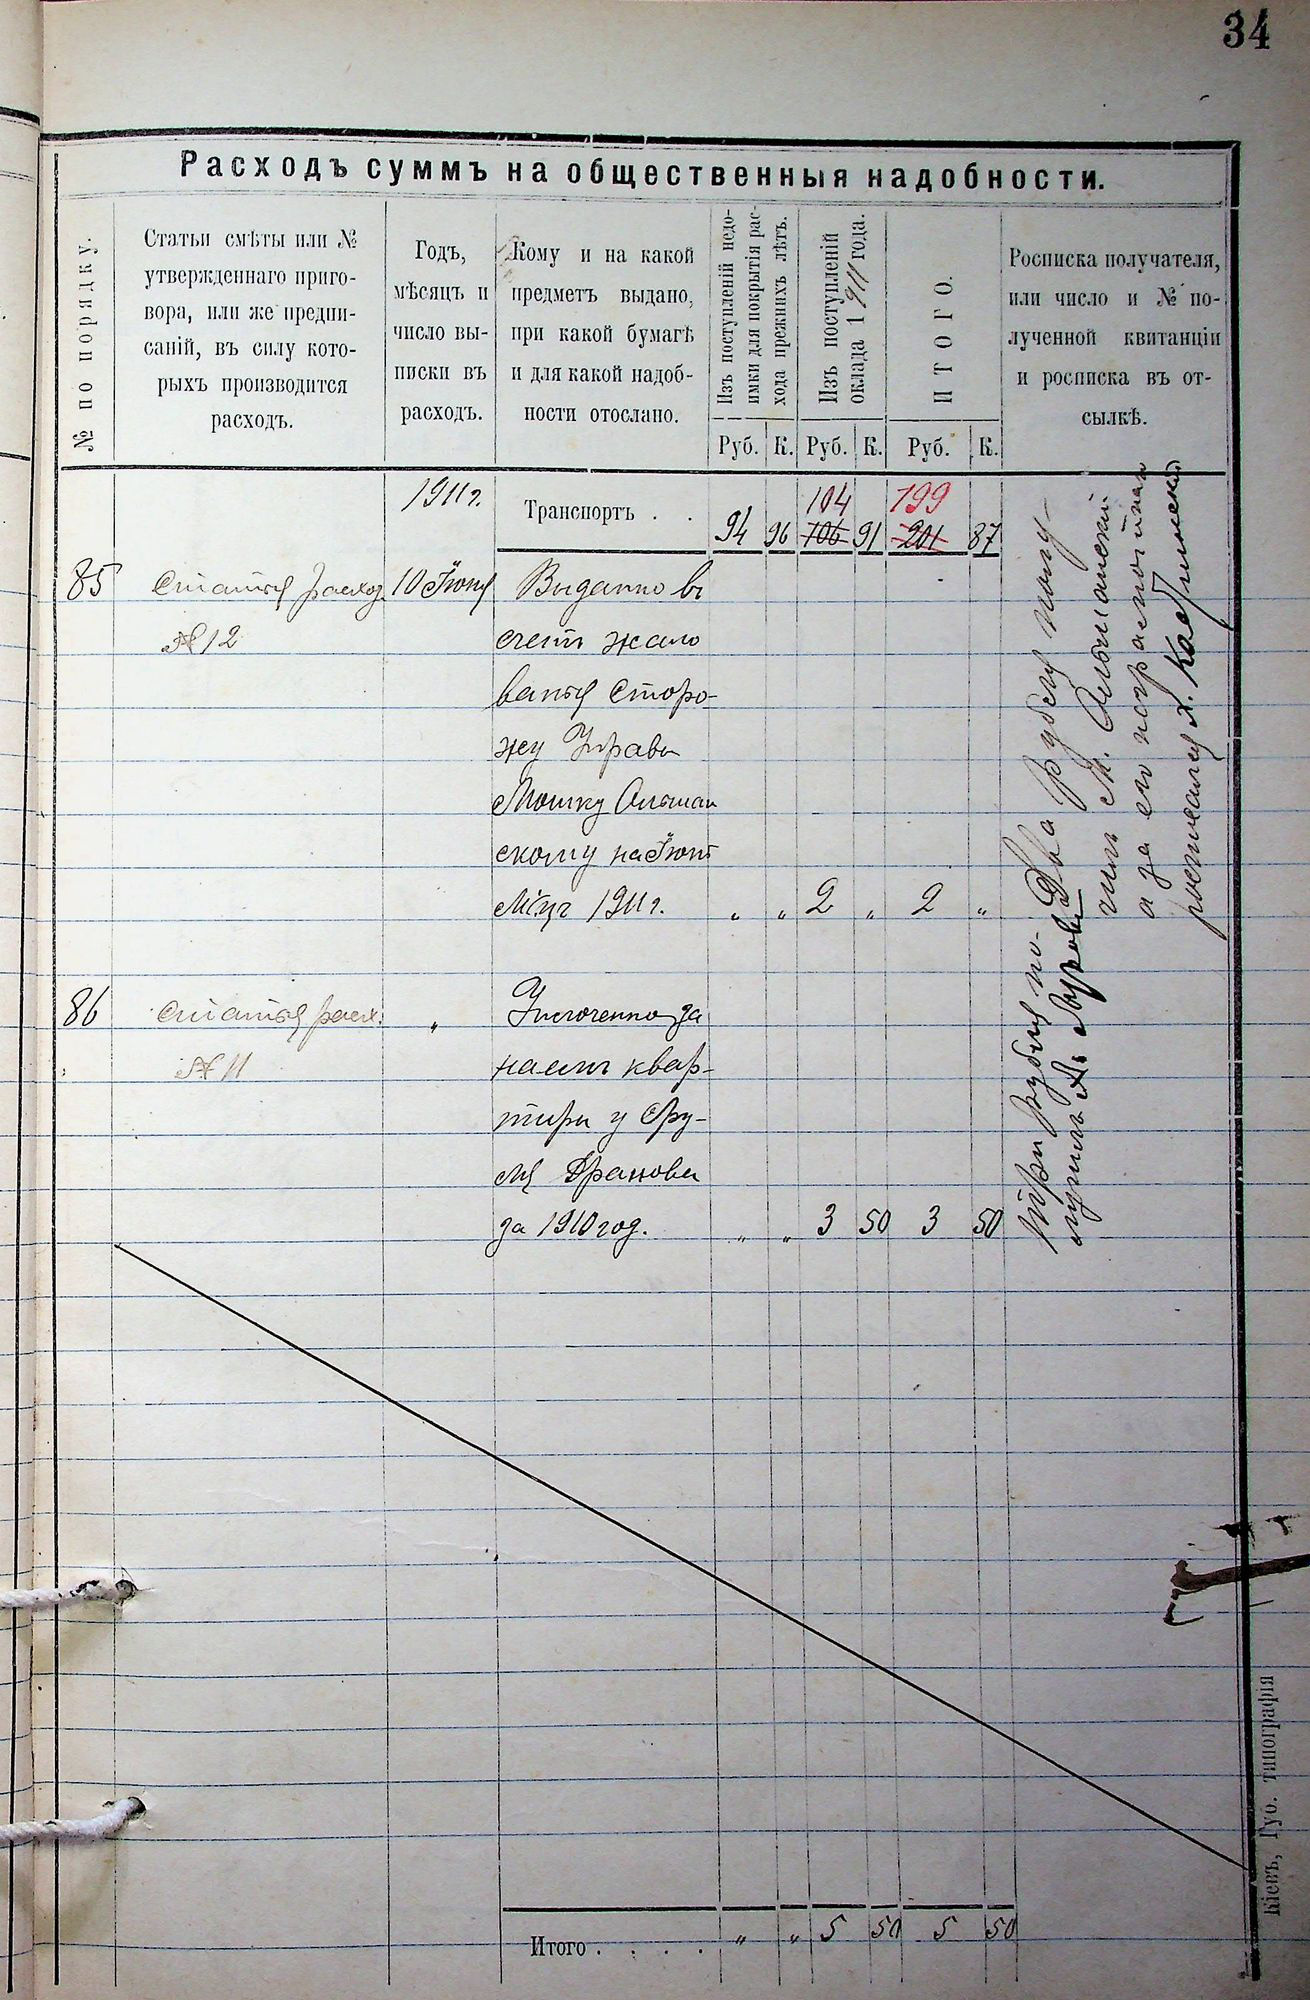 34
Расходъ суммъ на общественныя надобности.
№ по порядку.
Статьи смѣты или №
утвержденнаго приго-
вора, или же предпи-
саній, въ силу кото-
рыхъ производится
расходъ.
Годъ,
мѣсяцъ и
число вы-
писки въ
расходъ.
Кому и на какой
предметъ выдано,
при какой бумагѣ
и для какой надоб-
ности отослано.
Изъ поступленій недо-
имки для покрытія рас-
хода прежнихъ лѣтъ.
Изъ поступленій
оклада 1911 года.
ИТОГО.
Росписка получателя,
или число и № по-
лученной квитанціи
и росписка въ от-
сылкѣ.
Руб. К. Руб. К. Руб. К.
1911 г. Транспортъ . . 104 199
94 96 106 91 201 87
85 Статья расход. 10 Іюня Выданно въ
№ 12 счетъ жало
ванья Сторо-
жу Управы
Мошку Ольшан
скому на Іюнь
м-цъ 1911 г. „ „ 2 „ 2 „
Два рубля полу-
чилъ М. Ольшанскій
а за его неграмотнаго
росписался
86 Статья расх. „ Уплоченно за
№ 11 наемъ квар-
тиры у Сру-
ля
за 1910 год. „ „ 3 50 3 50
Три рубля по-
лучилъ
Итого . . . . „ „ 5 50 5 50
Кіевъ, Губ. типографія